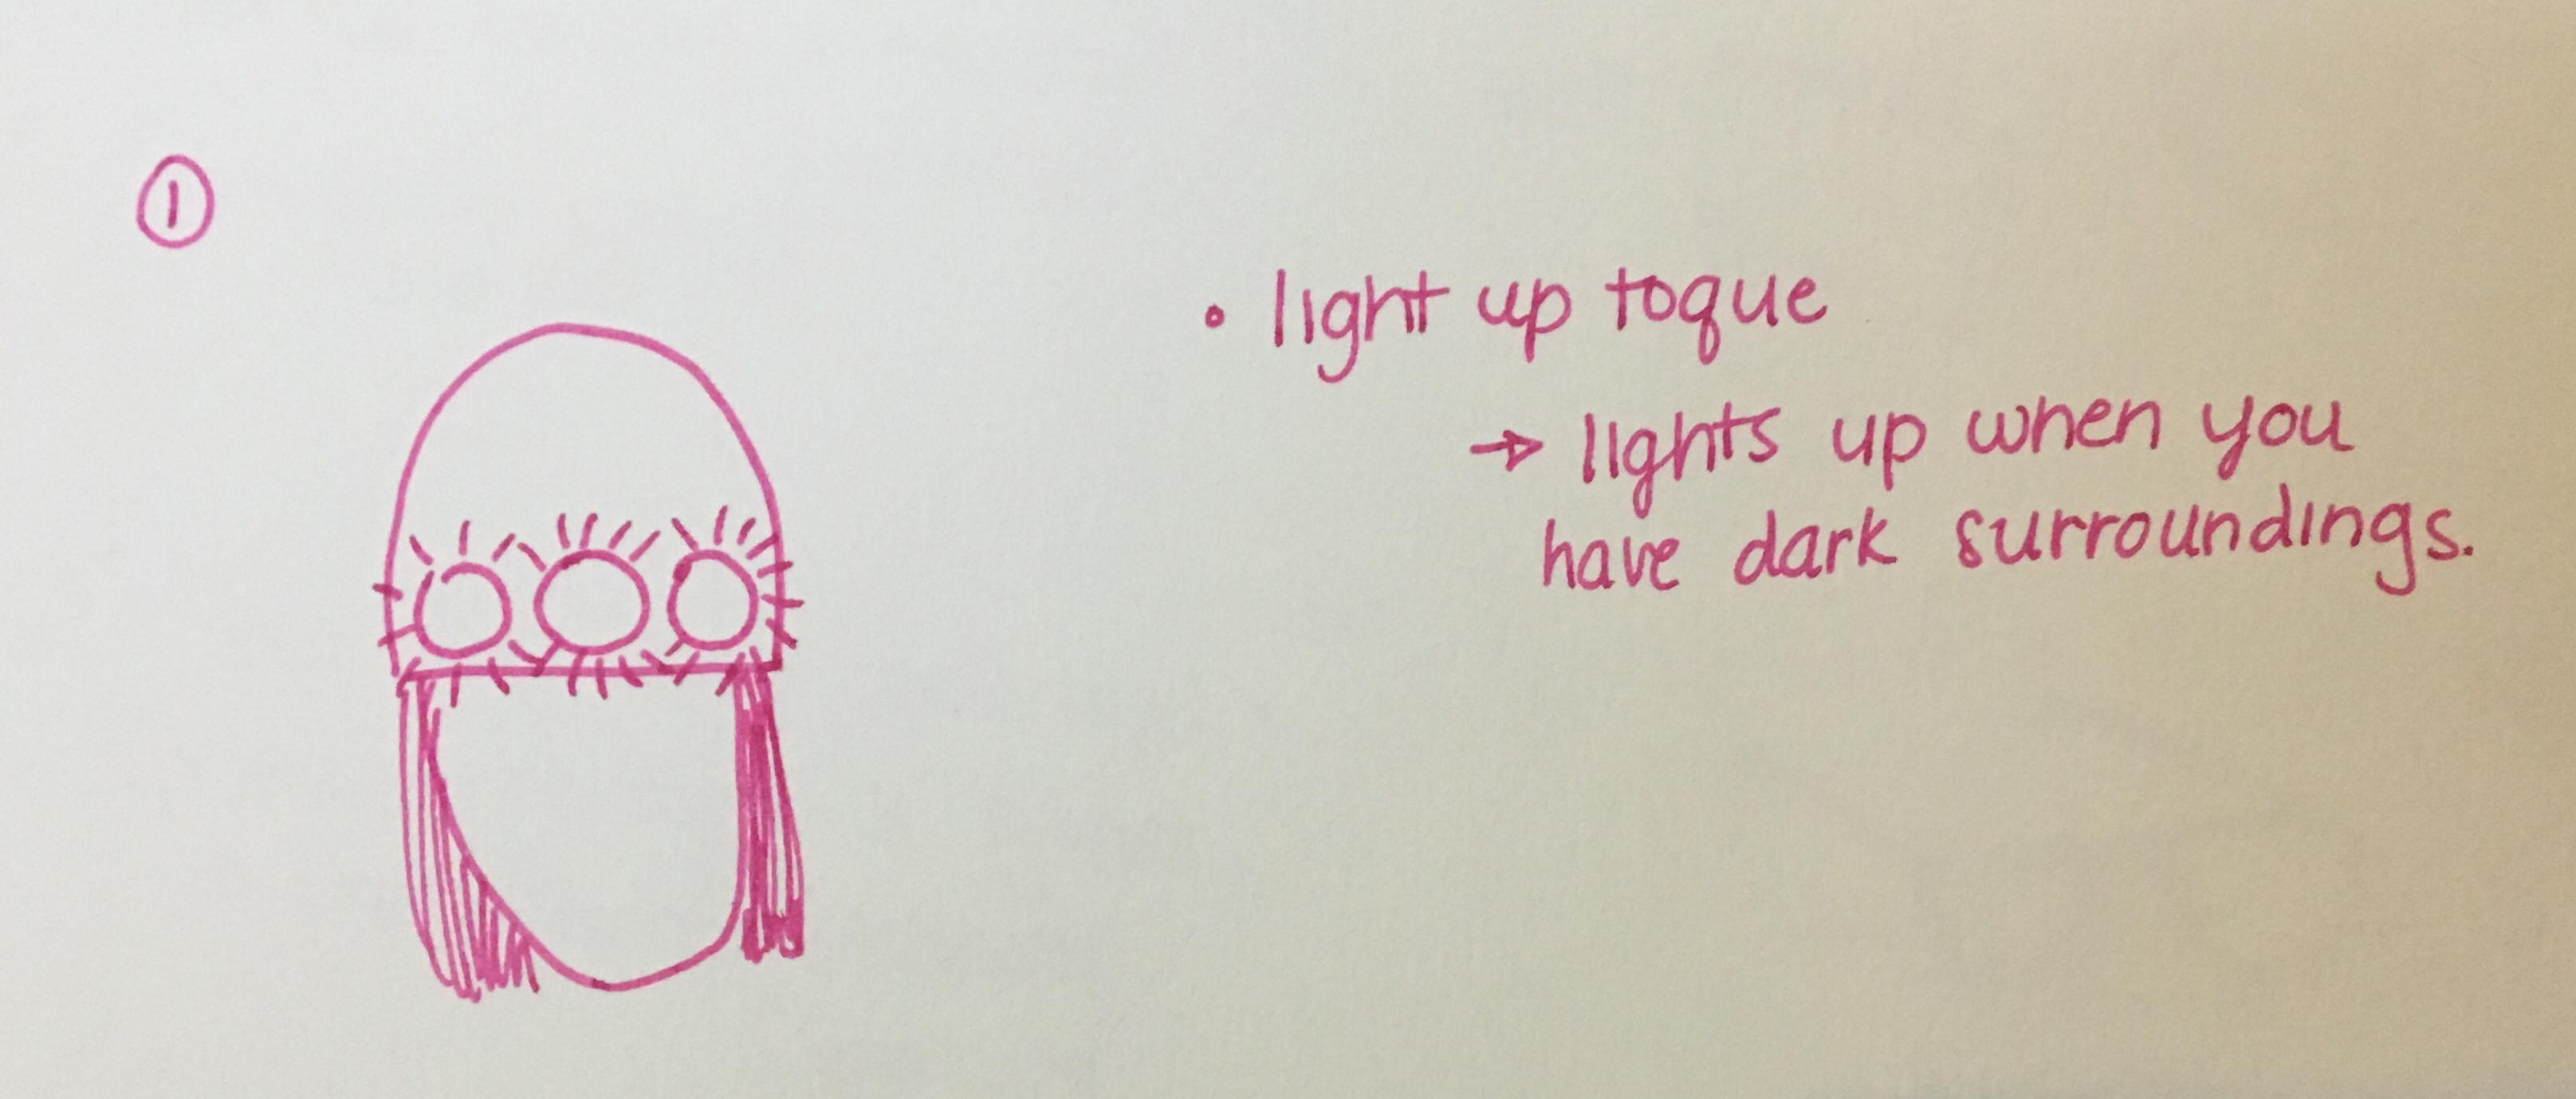 ①
• light up toque
→ lights up when you
have dark surroundings.